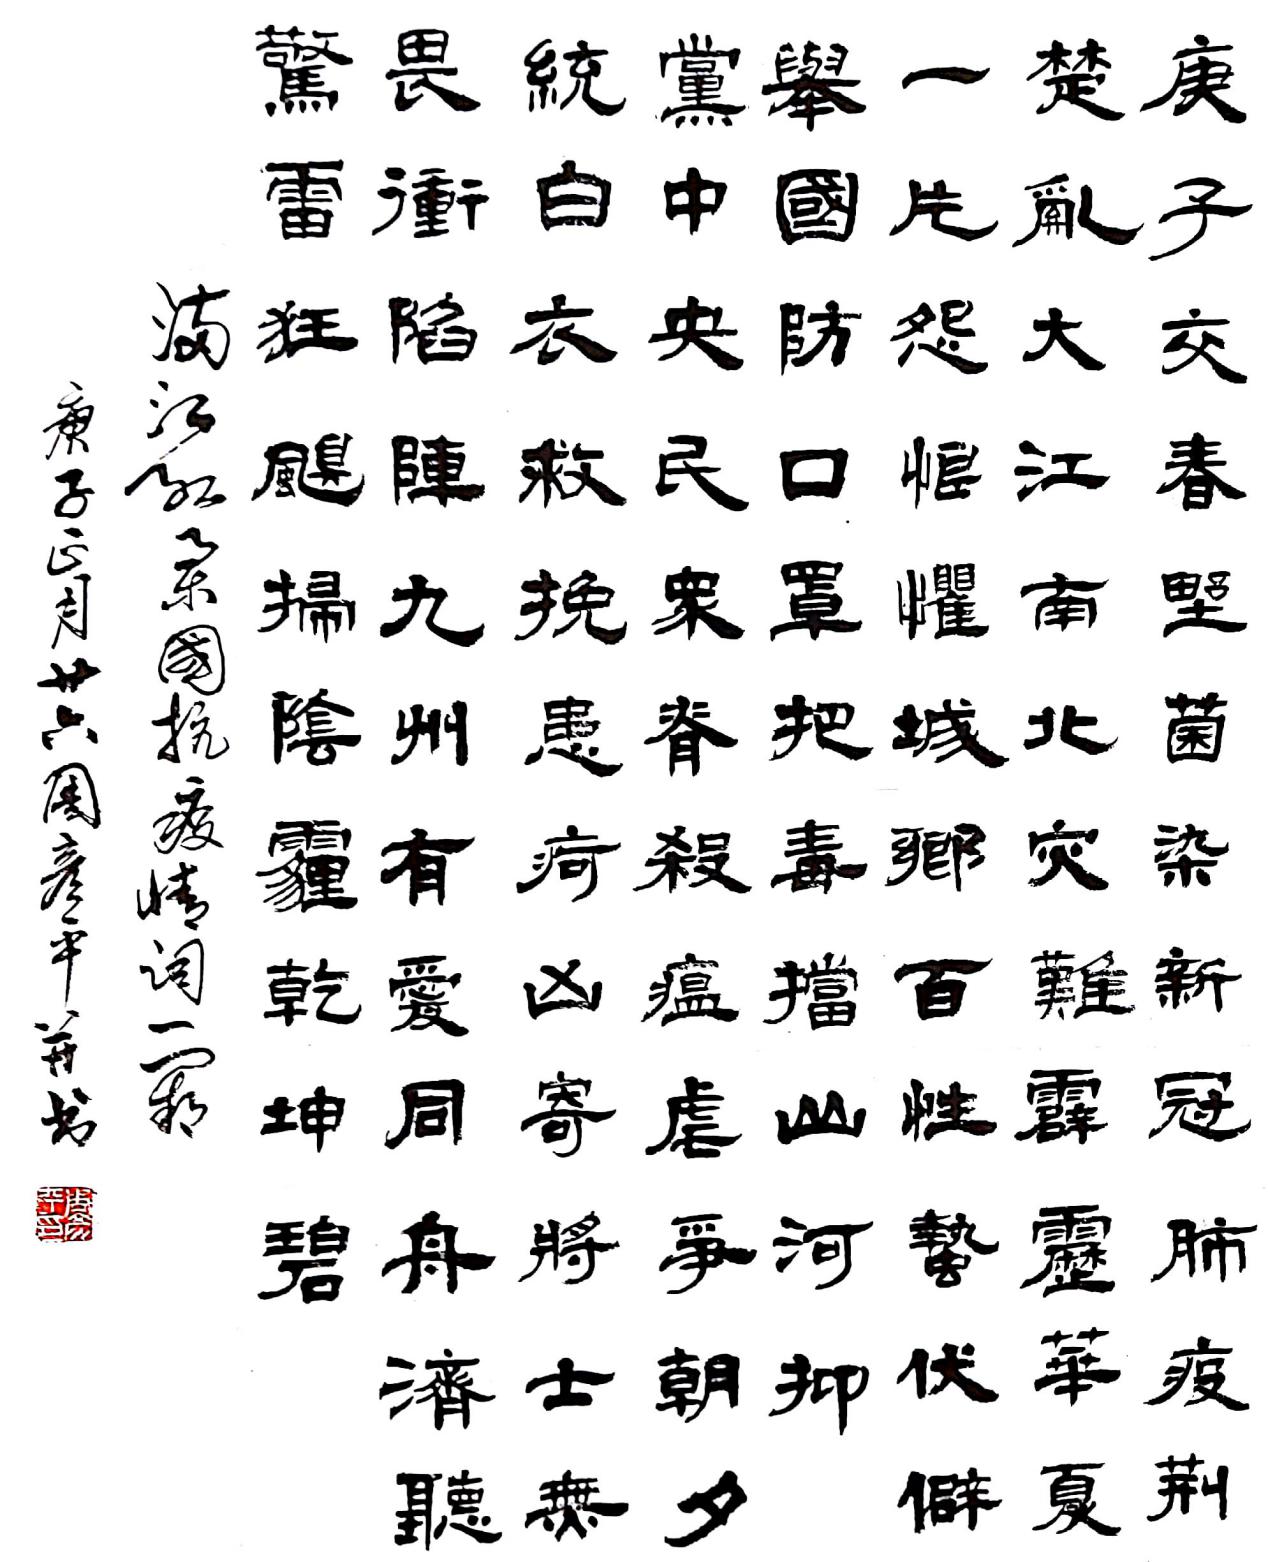 庚子交春野菌染新冠肺疫荆
楚亂大江南北灾難霹靂華夏
一片怨悵懼城鄉百性蟄伏僻
舉國防口罩把毒擋山河抑
黨中央民衆脊殺瘟虐爭朝夕
統白衣救挽患疴凶寄將士無
畏衝陷陣九州有愛同舟濟聽
驚雷狂飈掃陰霾乾坤碧
滿江紅 舉國抗疫情詞一闋
庚子正月廿六周彦平并书